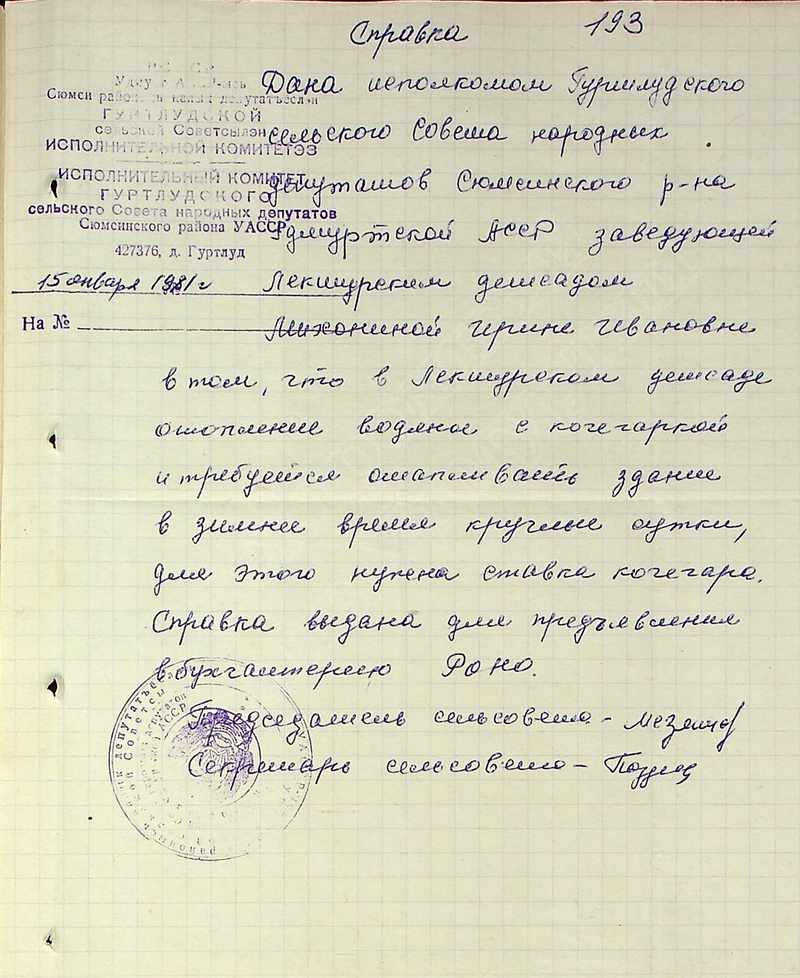 193
Справка
Удмурт АССР-ысь
Сюмси районысь калык депутатъёслэн
ГУРТЛУДСКОЙ
сельской Советсылэн
ИСПОЛНИТЕЛЬНОЙ КОМИТЕТЭЗ
ИСПОЛНИТЕЛЬНЫЙ КОМИТЕТ
ГУРТЛУДСКОГО
сельского Совета народных депутатов
Сюмсинского района УАССР
427376, д. Гуртлуд
15 января 1981 г
На №
Дана исполкомом Гуртлудского
сельского Совета народных
депутатов Сюмсинского р-на
Удмуртской АССР заведующей
Лекшурским детсадом
Михониной Ирине Ивановне
в том, что в Лекшурском детсаде
отопление водяное с кочегаркой
и требуется отапливать здание
в зимнее время круглые сутки,
для этого нужена ставка кочегара.
Справка выдана для предъявления
в бухгалтерию Роно.
Председатель сельсовета -
Секретарь сельсовета -